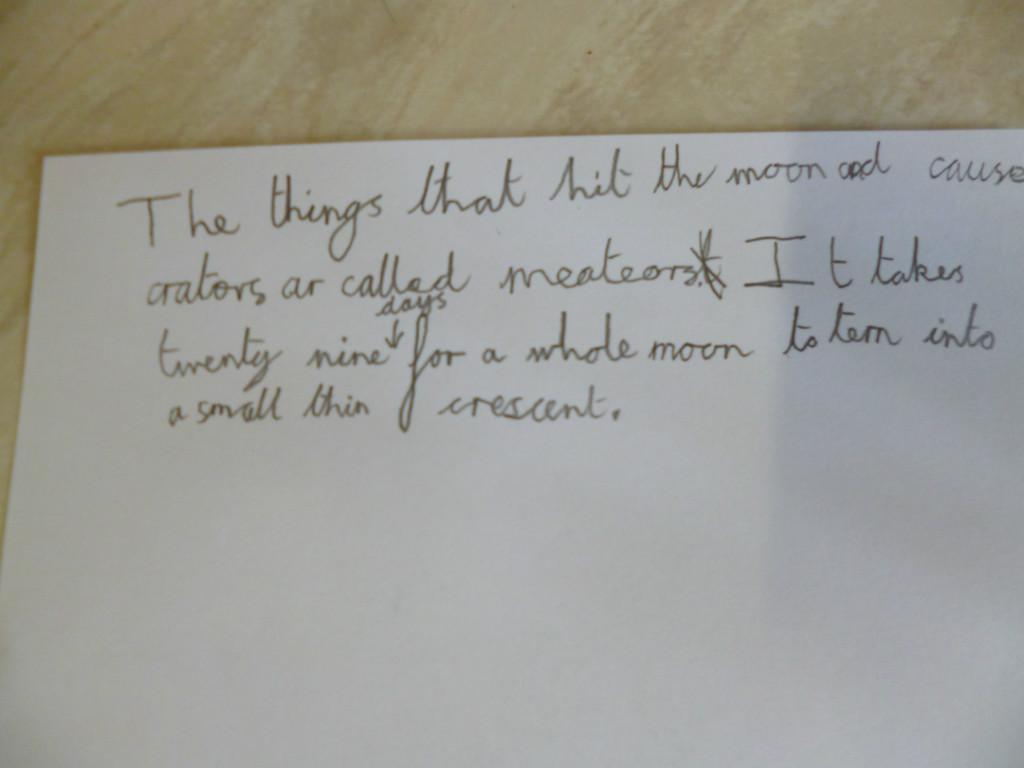 The things that hit the moon and cause
crators ar called meateors. It takes
days
twenty nine for a whole moon to tern into
a small thin crescent.